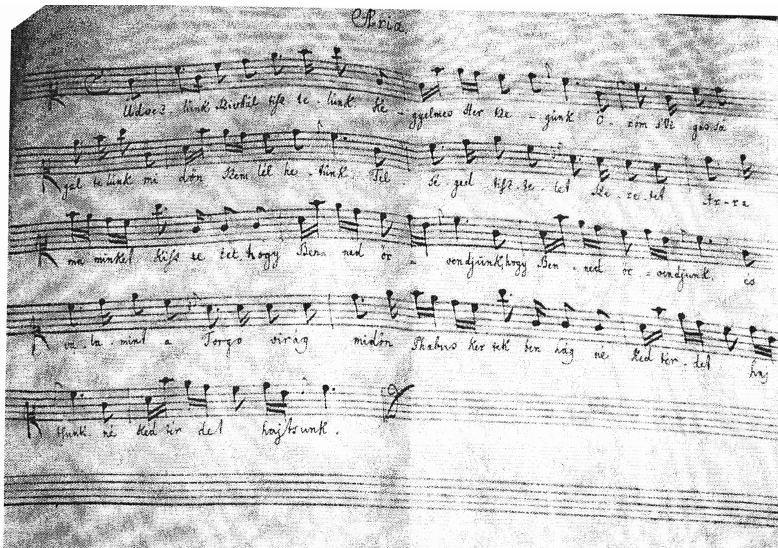 Aria.
Üdvez- lünk Szivbül tisz te- lünk Ke- gyelmes Her tze- günk Ö- röm s Vi gassá
gal te lünk mi dön Szem lél he- tünk. Fel- sé ged tisz- te- let
ma minket kiss te tet, hogy Ben- ned ör- vendjünk, hogy Ben- ned ör- vendjunk, és
va- la- mint a virág midön Phæbus ker tek ben hág né ked tér- det haj
tsunk né ked tér det hajtsunk.